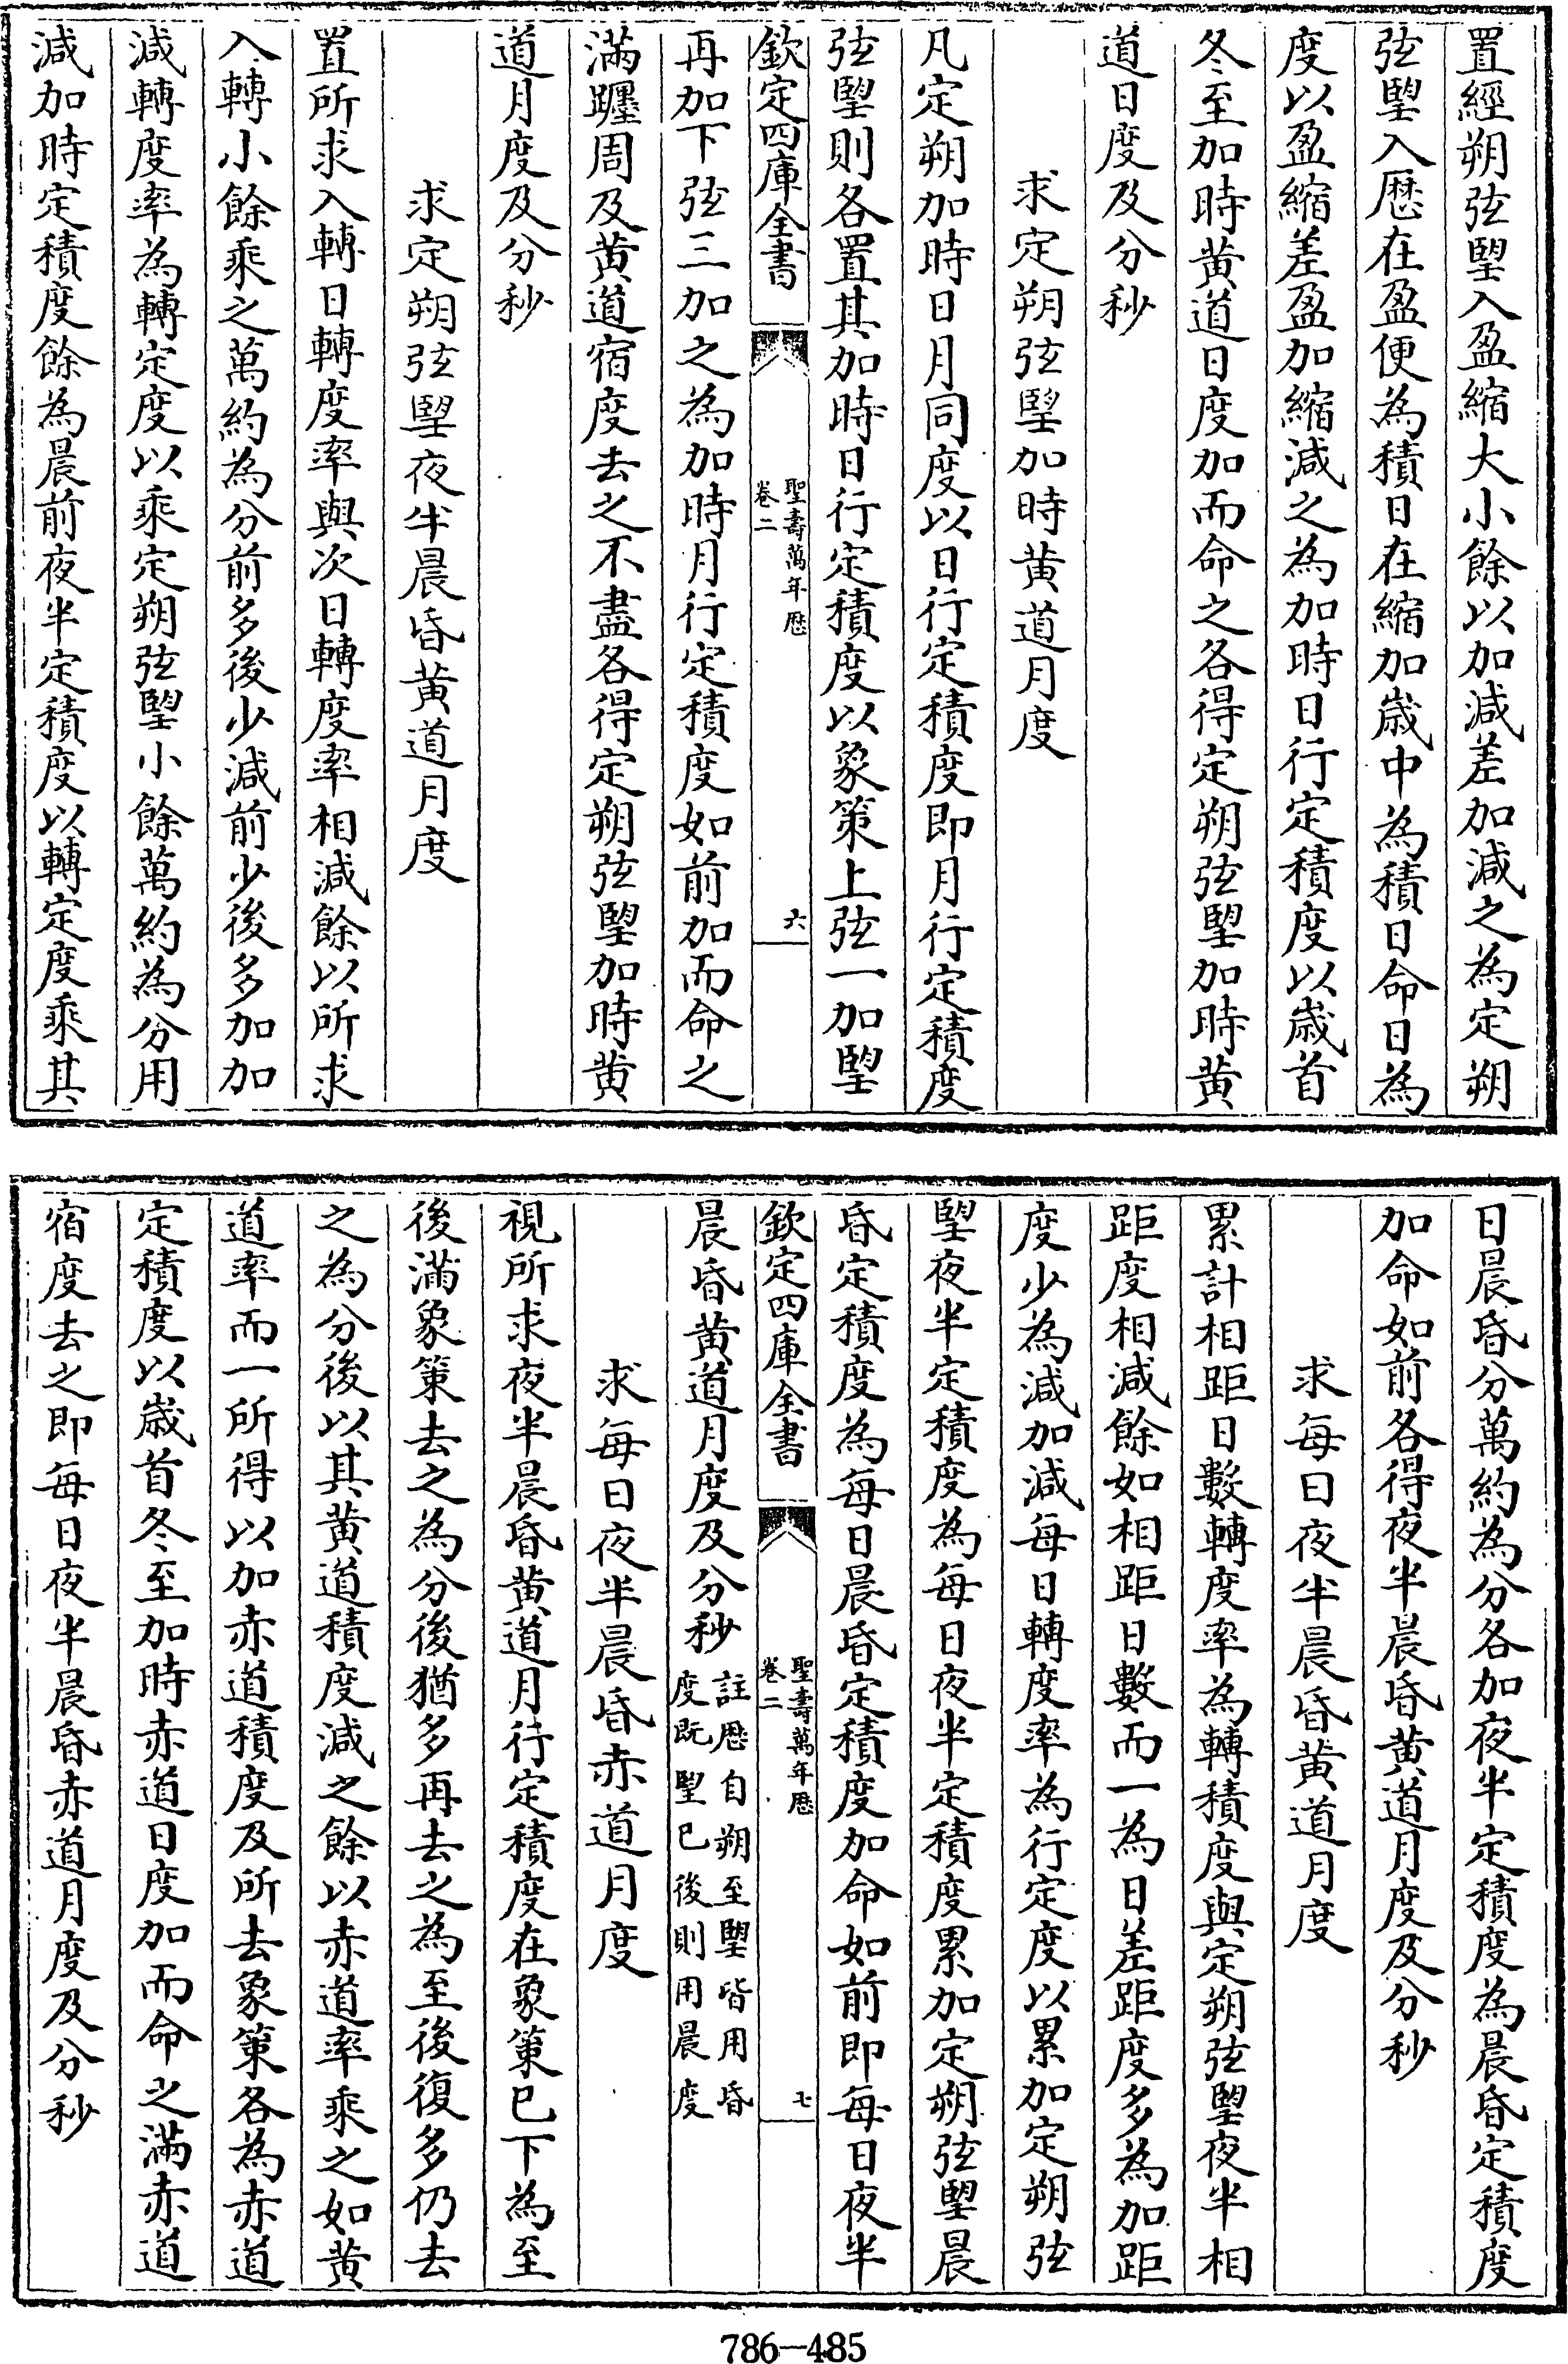 置經朔弦朢入盈縮大小餘以加減差加減之為定朔
弦朢入厯在盈便為積日在縮加歳中為積日命日為
度以盈縮差盈加縮減之為加時日行定積度以歳首
冬至加時黄道日度加而命之各得定朔弦朢加時黄
道日度及分秒
求定朔弦朢加時黄道月度
凡定朔加時日月同度以日行定積度即月行定積度
弦朢則各置其加時日行定積度以象策上弦一加朢
欽定四庫全書
聖壽萬年厯
卷二
六
再加下弦三加之為加時月行定積度如前加而命之
滿躔周及黄道宿度去之不盡各得定朔弦朢加時黄
道月度及分秒
求定朔弦朢夜半晨昏黄道月度
置所求入轉日轉度率與次日轉度率相減餘以所求
入轉小餘乘之萬約為分前多後少減前少後多加加
減轉度率為轉定度以乘定朔弦朢小餘萬約為分用
減加時定積度餘為晨前夜半定積度以轉定度乘其
日晨昏分萬約為分各加夜半定積度為晨昏定積度
加命如前各得夜半晨昏黄道月度及分秒
求每日夜半晨昏黄道月度
累計相距日數轉度率為轉積度與定朔弦朢夜半相
距度相減餘如相距日數而一為日差距度多為加距
度少為減加減每日轉度率為行定度以累加定朔弦
朢夜半定積度為每日夜半定積度累加定朔弦朢晨
昏定積度為每日晨昏定積度加命如前即每日夜半
欽定四庫全書
聖壽萬年厯
卷二
七
晨昏黄道月度及分秒註厯自朔至朢皆用昏
度既朢已後則用晨度
求每日夜半晨昏赤道月度
視所求夜半晨昏黄道月行定積度在象策已下為至
後滿象策去之為分後猶多再去之為至後復多仍去
之為分後以其黄道積度減之餘以赤道率乘之如黄
道率而一所得以加赤道積度及所去象策各為赤道
定積度以歳首冬至加時赤道日度加而命之滿赤道
宿度去之即每日夜半晨昏赤道月度及分秒
786-485